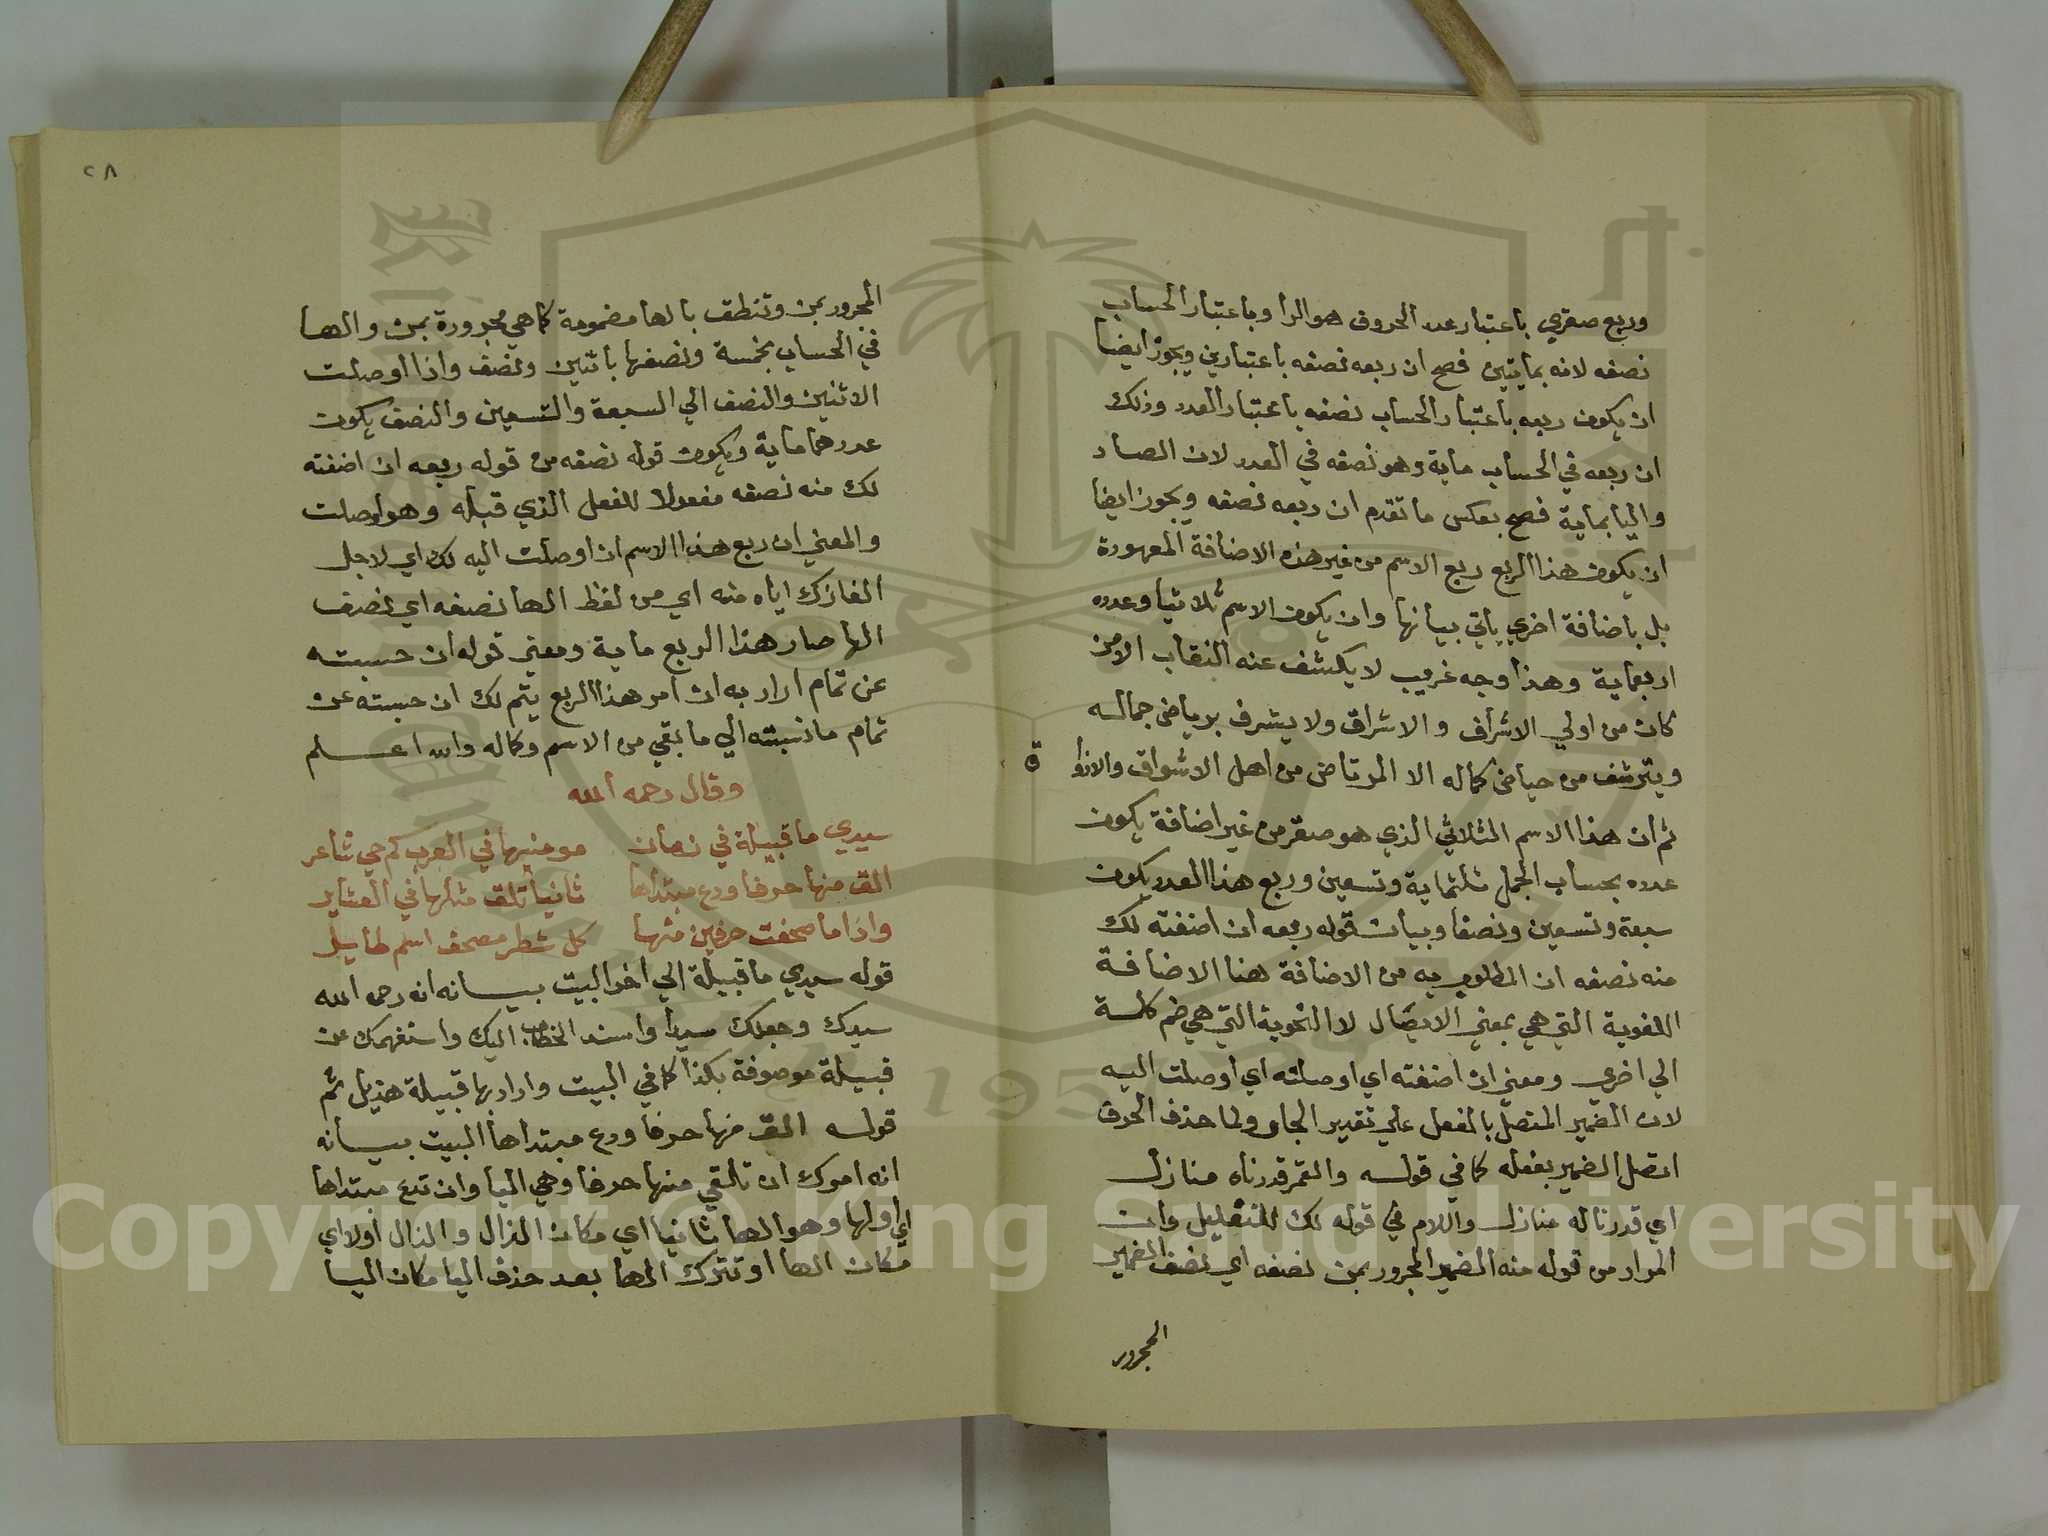 وربع صقري باعتبار عدد الحروف هو الرا وباعتبار الحساب
نصفه لانه بمايتين فصح ان ربعه نصفه باعتبارين ويجوز ايضا
ان يكون ربعه باعتبار الحساب نصفه باعتبار العدد وذلك
ان ربعه في الحساب ماية وهو نصفه في العدد لان الصاد
واليا بماية فصح بعكس ما تقدم ان ربعه نصفه ويجوز ايضا
ان يكون هذا الربع ربع الاسم من غير هذه الاضافة المعهودة
بل باضافة اخري ياتي بيانها وان يكون الاسم ثلاثيا وعدده
اربعماية وهذا وجه غريب لا يكشف عنه النقاب الا من
كان من اولي الاشراف والاشراق ولا يشرف برياض جماله
ويترشف من حياض كماله الا المرتاض من اهل الاشواق والاذوا
ق
ثم ان هذا الاسم الثلاثي الذي هو صقر من غير اضافة يكون
عدده بحساب الجمل ثلثماية وتسعين وربع هذا العدد يكون
سبعة وتسعين ونصفا وبيان قوله ربعه ان اضفته لك
منه نصفه ان المطلوب به من الاضافة هنا الاضافة
اللغوية التي هي بمعني الايصال لا النحوية التي هي ضم كلمة
الي اخري ومعني ان اضفته اي اوصلته اي اوصلت اليه
لان الضمير المتصل بالفعل علي تقدير الجار ولما حذف الحرف
اتصل الضمير بفعله كما في قوله والقمر قدرناه منازل
اي قدرنا له منازل واللام في قوله لك للتعليل وان
المراد من قوله منه الضمير المجرور بمن نصفه اي نصف الضمير
المجرور
٢٨
المجرور بمن وتنطق بالها مضمومة كما هي مجرورة بمن والها
في الحساب بخمسة ونصفها باثنين ونصف واذا اوصلت
الاثنين والنصف الي السبعة والتسعين والنصف يكون
عددهما ماية ويكون قوله نصفه من قوله ربعه ان اضفته
لك منه نصفه مفعولا للفعل الذي قبله وهو اوصلت
والمعني ان ربع هذا الاسم ان اوصلت اليه لك اي لاجل
الغازك اياه منه اي من لفظ الها نصفه اي نصف
الها صار هذا الربع ماية ومعني قوله ان حسبته
عن تمام اراد به ان امر هذا الربع يتم لك ان حسبته عن
تمام ما نسبته الي ما بقي من الاسم وكاله والله اعلم
وقال رحمه الله
سيدي ما قبيلة في زمان مر منها في العرب كم حي شاعر
الق منها حرفا ودع مبتداها ثانيا تلق مثلها في العشاير
واذا ما صحفت حرفين منها كل شطر مصحف اسم طاير
قوله سيدي ما قبيلة الي اخر البيت بيانه انه رحمه الله
سيدك وجعلك سيدا واسند الخطاب اليك واستفهمك عن
قبيلة موصوفة بكذا كما في البيت واراد بها قبيلة هذيل ثم
قوله الق منها حرفا ودع مبتداها البيت بيانه
انه امرك ان تلقي منها حرفا وهي اليا وان تدع مبتداها
اي اولها وهو الها ثانيا اي مكان الذال والذال اولا اي
مكان الها او تترك الها بعد حذف اليا مكان اليا
Copyright © King Saud University
195